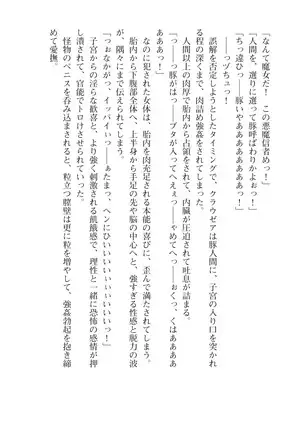 「なんて魔女だ！　この悪魔信者めっ！」
「人間を、選りに選って豚呼ばわりかよぉっ！」
「ちっ違ひっ――豚ぃやあああああああっ！
っづちュっ！」
　誤解を否定しようとしたタイミングで、クラウゼアは豚人間に、子宮の入り口を突かれ
る程の深くまで、肉詰め強姦をされてしまった。
　人間以上の肉厚で胎内から占領をされて、内臓が圧迫されて吐息が詰まる。
「っ――っ豚がはっ――ブタが入ってへえぇっ――ゃめてへっ――おくっ、くはああああ
あああっ！」
　なのに犯された女体は、胎内を肉充足される本能の喜びに、歪んで満たされてしまう。
　胎内から下腹部全体へ、上半身から手足の先や脳の中心へと、強すぎる性感と脱力の波
が、隅々にまで伝えられてしまう。
「っぉなかがっ、イッパイぃっ――ぁたまっ、ヘンにひいいいいぃぃぃいいいいっ！」
　子宮からの淫らな歓喜と、より強く刺激される飢餓感で、理性と一緒に恐怖の感情が押
し潰されて、官能でトロけさせられていった。
　怪物のペニスを呑み込まされると、粒立つ膣壁は更に粒を増やして、強姦勃起を抱き締
めて愛撫。